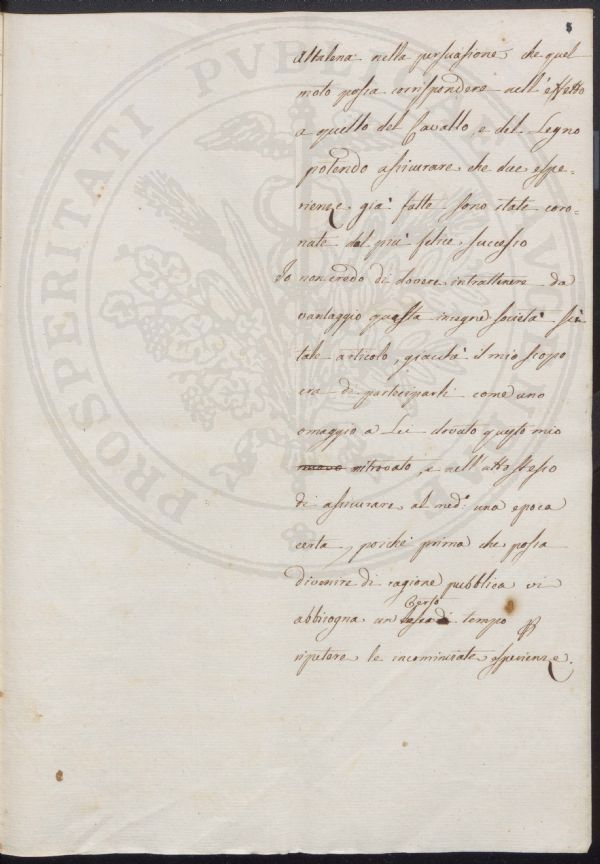 5
altalena nella persuasione che quel
moto possa corrispondere nell'effetto
a quello del Cavallo, e del Legno
potendo assicurare che due espe-
rienze già fatte sono state coro-
nate dal più felice successo
Io non credo di dovere intrattenere da
vantaggio questa insegne società su
tale articolo, giacchè il mio scopo
era di parteciparli come uno
omaggio a Lei dovuto questo mio
nuovo ritrovato, e nell'atto stesso
di assicurare al med.o una epoca
certa, poichè prima che possa
divenire di ragione pubblica vi
abbisogna un certo di tempo
ripetere le incominciate esperienze.
PROSPERITATI PUBLICAE